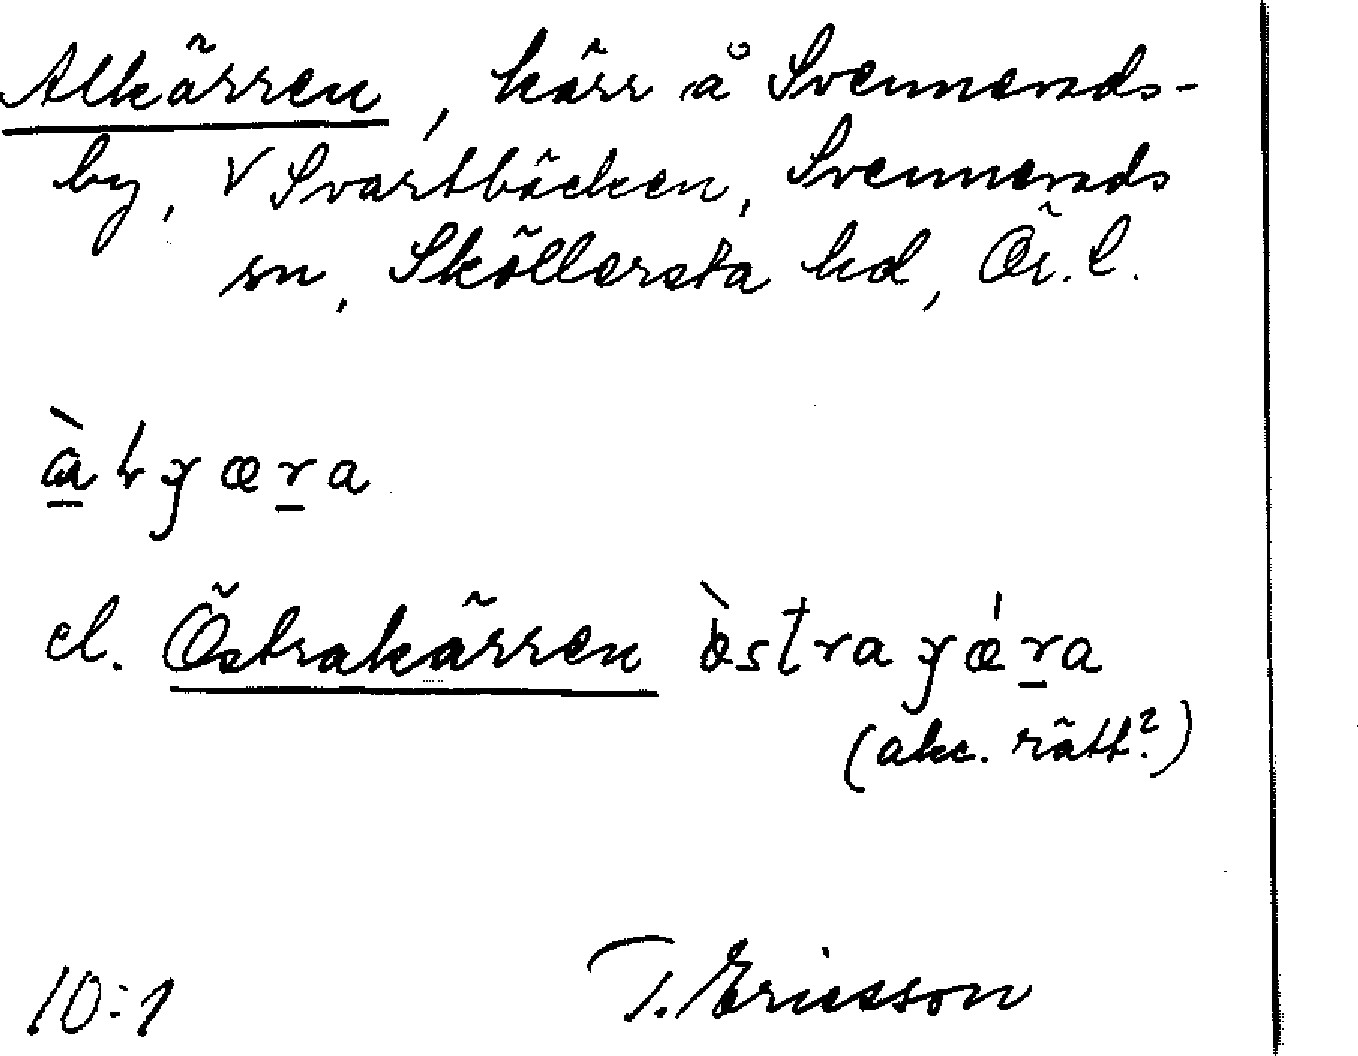 Alkärren, kärr å Svennevads-
by, V Svartbäcken, Svennevads
sn, Sköllersta hd, Ör. l.
àlɣæra
el. Östrakärren òstraɣǽra
(akc. rätt?)
10:1 T. Ericsson